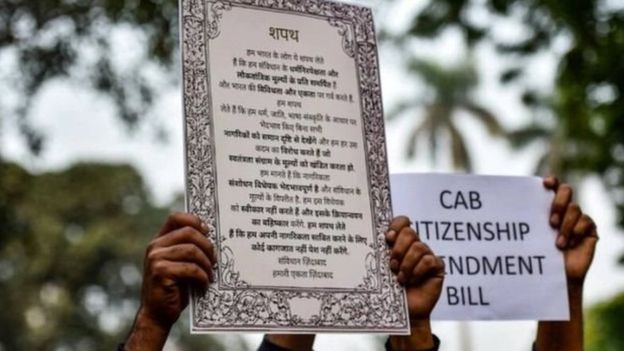 शपथ
हम भारत के लोग ये शपथ लेते
हैं कि हम संविधान के धर्मनिरपेक्षता और
लोकतांत्रिक मूल्यों के प्रति समर्पित हैं
और भारत की विविधता और एकता पर गर्व करते हैं.
हम शपथ
लेते हैं कि हम धर्म, जाति, भाषा-संस्कृति के आधार पर
भेदभाव किए बिना सभी
नागरिकों को समान दृष्टि से देखेंगे और हम हर उस
कदम का विरोध करेंगे जो
स्वतंत्रता संग्राम के मूल्यों को खंडित करता हो.
हम मानते हैं कि नागरिकता
संशोधन विधेयक भेदभावपूर्ण है और संविधान के
मूल्यों के विपरीत है. हम इस विधेयक
को स्वीकार नहीं करते हैं और इसके क्रियान्वयन
का बहिष्कार करेंगे. हम शपथ लेते
हैं कि हम अपनी नागरिकता साबित करने के लिए
कोई कागजात नहीं पेश नहीं करेंगे.
संविधान ज़िंदाबाद
हमारी एकता ज़िंदाबाद
CAB
ITIZENSHIP
ENDMENT
BILL